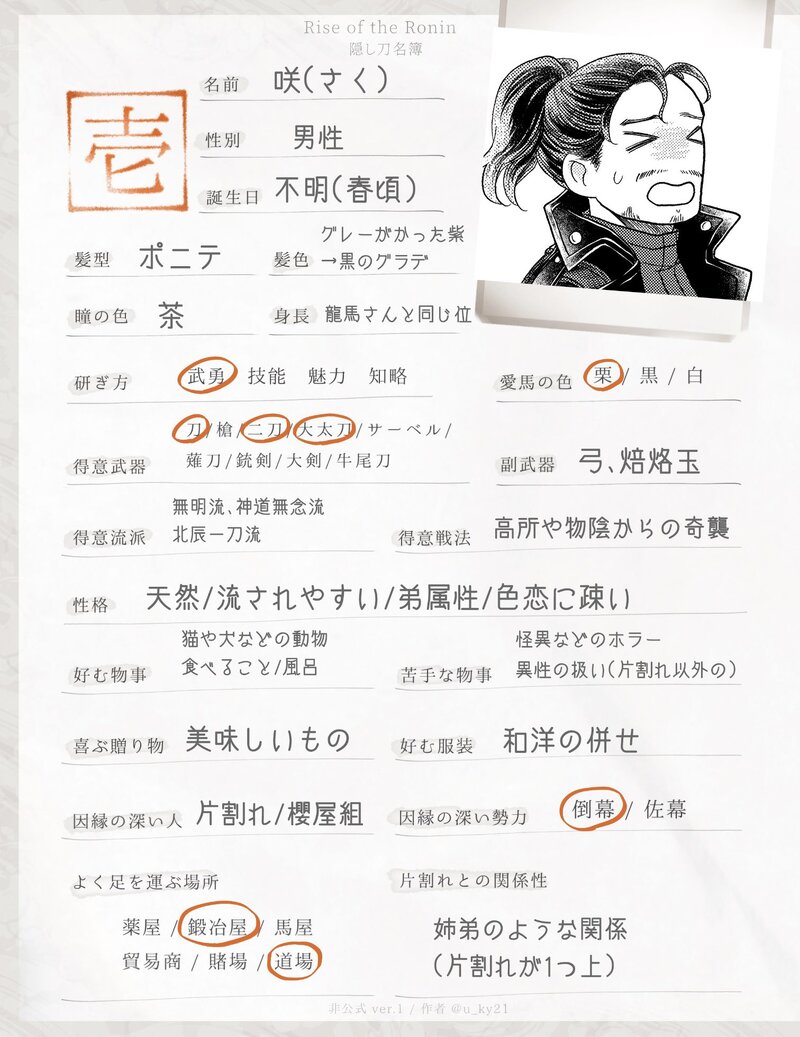 Rise of the Ronin
隠し刀名簿
壱
名前 咲(さく)
性別 男性
誕生日 不明(春頃)
髪型 ポニテ
髪色 グレーがかった紫
→黒のグラデ
瞳の色 茶
身長 龍馬さんと同じ位
研ぎ方 武勇 技能 魅力 知略
愛馬の色 栗 / 黒 / 白
得意武器 刀/槍/二刀/大太刀/サーベル/
薙刀/銃剣/大剣/牛尾刀
副武器 弓、焙烙玉
得意流派 無明流、神道無念流
北辰一刀流
得意戦法 高所や物陰からの奇襲
性格 天然/流されやすい/弟属性/色恋に疎い
好む物事 猫や犬などの動物
食べること/風呂
苦手な物事 怪異などのホラー
異性の扱い(片割れ以外の)
喜ぶ贈り物 美味しいもの
好む服装 和洋の併せ
因縁の深い人 片割れ/櫻屋組
因縁の深い勢力 倒幕 / 佐幕
よく足を運ぶ場所
薬屋 / 鍛冶屋 / 馬屋
貿易商 / 賭場 / 道場
片割れとの関係性
姉弟のような関係
(片割れが1つ上)
非公式 ver.1 / 作者 @u_ky21